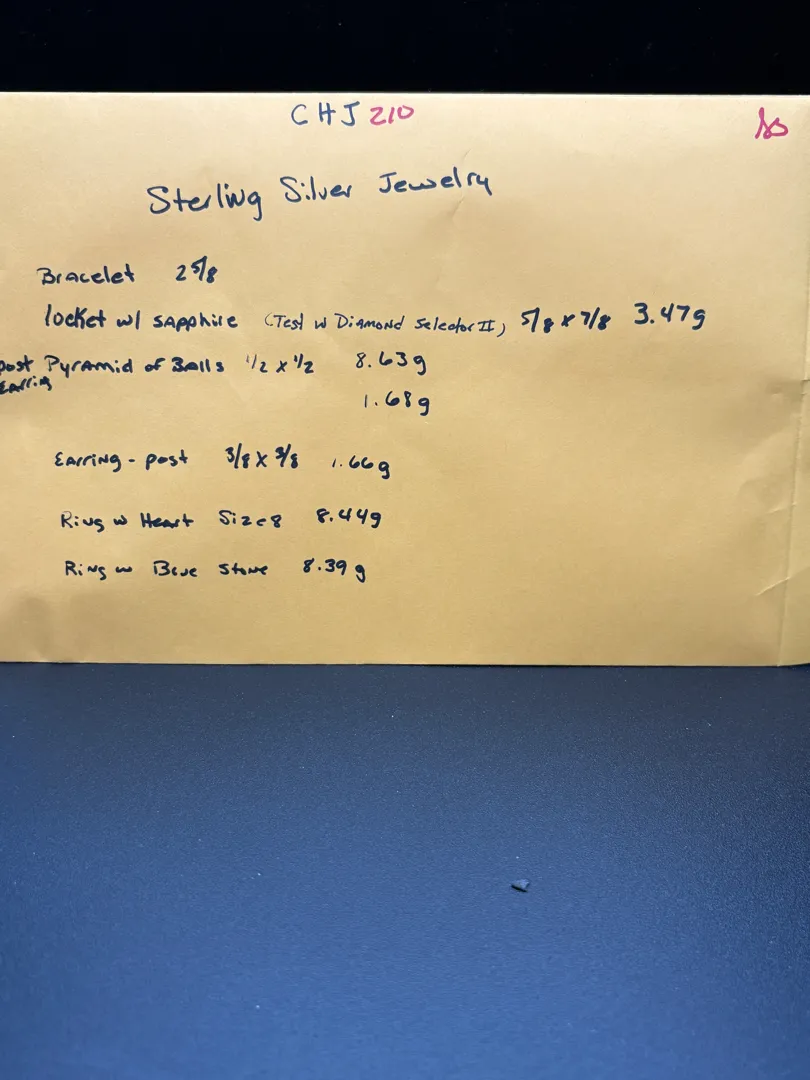 CHJ 210
SS
Sterling Silver Jewelry
Bracelet 2 5/8
locket w/ sapphire (Test w Diamond Selector II) 5/8 x 7/8 3.47g
post Pyramid of Balls 1/2 x 1/2 8.63g
Earring 1.68g
Earring - post 3/8 x 3/8 1.66g
Ring w Heart Size 8 8.44g
Ring w Blue Stone 8.39g